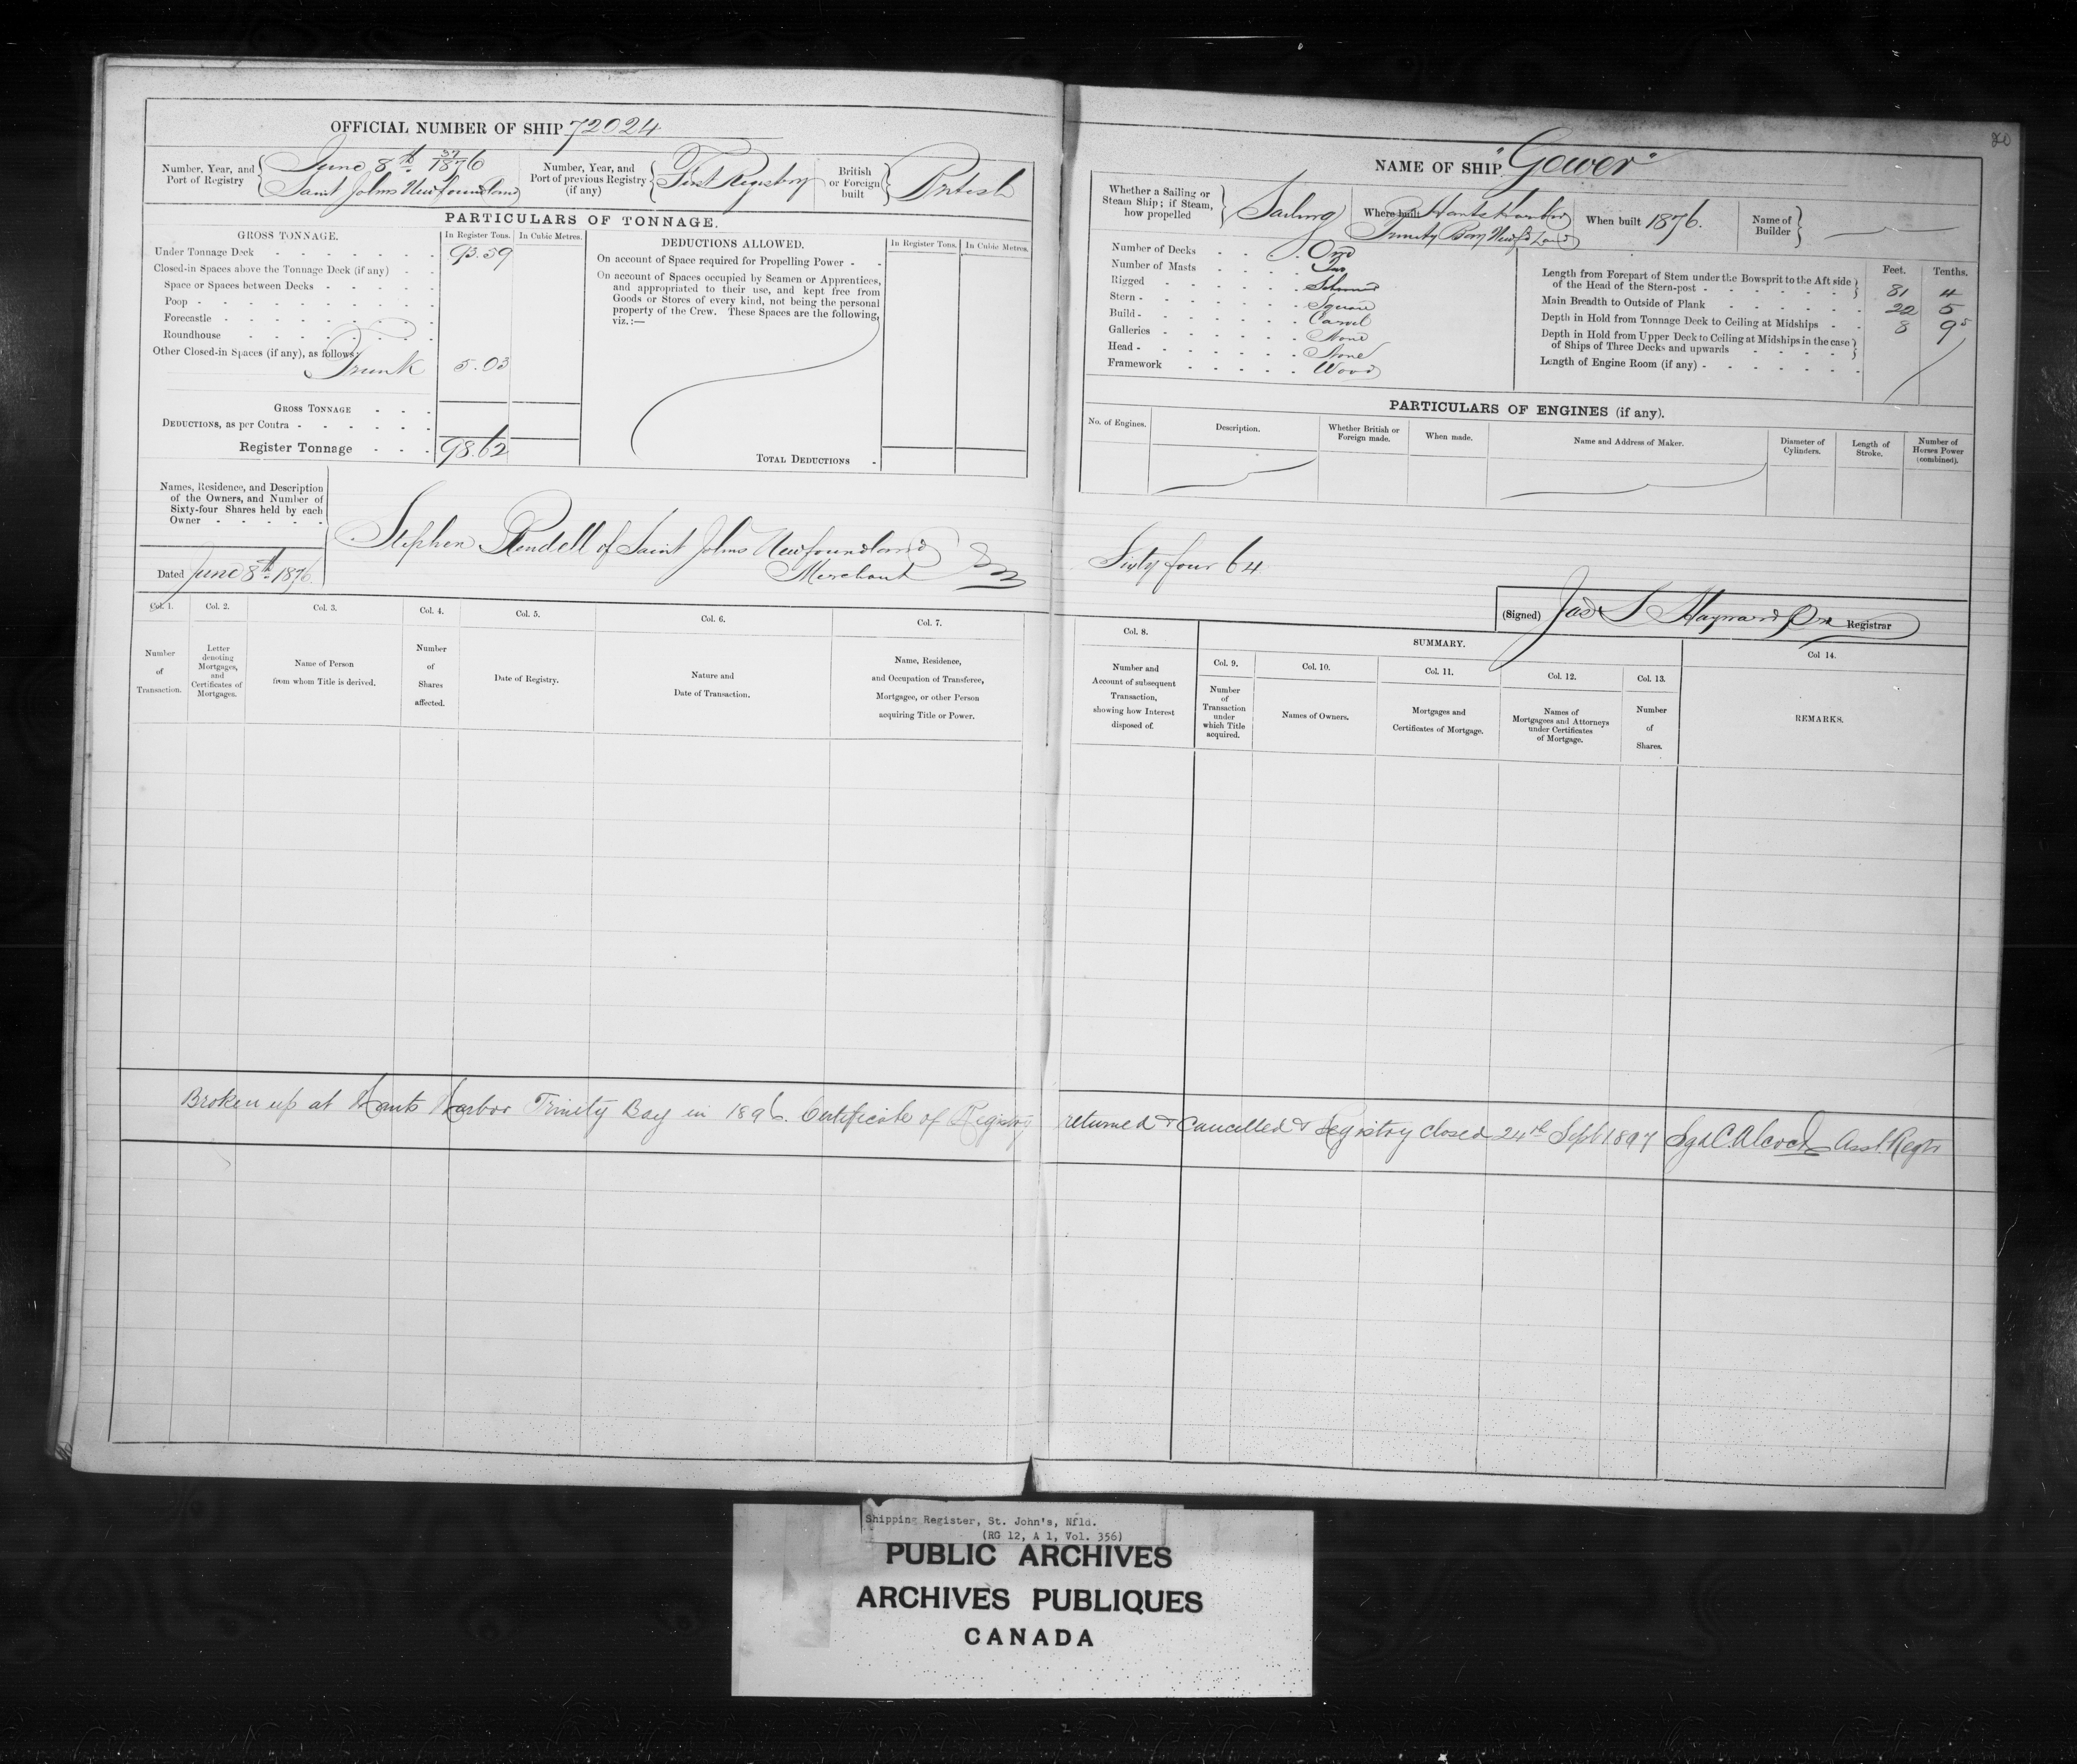 20
OFFICIAL NUMBER OF SHIP 72024
Number, Year, and Port of Registry
37
June 8th 1876
Saint Johns Newfoundland
Number, Year, and Port of previous Registry (if any)
First Registry
British or Foreign built
British
PARTICULARS OF TONNAGE.
GROSS TONNAGE.
In Register Tons.
In Cubic Metres.
Under Tonnage Deck 93.59
Closed-in Spaces above the Tonnage Deck (if any)
Space or Spaces between Decks
Poop
Forecastle
Roundhouse
Other Closed-in Spaces (if any), as follows:
Trunk 5.03
GROSS TONNAGE
DEDUCTIONS, as per Contra
Register Tonnage 98.62
DEDUCTIONS ALLOWED.
In Register Tons.
In Cubic Metres.
On account of Space required for Propelling Power
On account of Spaces occupied by Seamen or Apprentices,
and appropriated to their use, and kept free from
Goods or Stores of every kind, not being the personal
property of the Crew. These Spaces are the following,
viz.:—
TOTAL DEDUCTIONS
Names, Residence, and Description
of the Owners, and Number of
Sixty-four Shares held by each
Owner
Dated June 8th 1876
Stephen Rendell of Saint Johns Newfoundland
Merchant
Col. 1. Number of Transaction.
Col. 2. Letter denoting Mortgages, and Certificates of Mortgages.
Col. 3. Name of Person from whom Title is derived.
Col. 4. Number of Shares affected.
Col. 5. Date of Registry.
Col. 6. Nature and Date of Transaction.
Col. 7. Name, Residence, and Occupation of Transferee, Mortgagee, or other Person acquiring Title or Power.
NAME OF SHIP "Gower"
Whether a Sailing or
Steam Ship; if Steam,
how propelled
Sailing
Where built Hants Harbor
Trinity Bay Newfd Land
When built 1876.
Name of Builder
Number of Decks One
Number of Masts Two
Rigged Schooner
Stern Square
Build Carvel
Galleries None
Head None
Framework Wood
Feet. Tenths.
Length from Forepart of Stem under the Bowsprit to the Aft side
of the Head of the Stern-post 81 4
Main Breadth to Outside of Plank 22 5
Depth in Hold from Tonnage Deck to Ceiling at Midships 8 9 5
Depth in Hold from Upper Deck to Ceiling at Midships in the case
of Ships of Three Decks and upwards
Length of Engine Room (if any)
PARTICULARS OF ENGINES (if any).
No. of Engines.
Description.
Whether British or Foreign made.
When made.
Name and Address of Maker.
Diameter of Cylinders.
Length of Stroke.
Number of Horses Power (combined).
Sixty four 64
(Signed) Jas S Hayward Registrar
Col. 8. Number and Account of subsequent Transaction, showing how Interest disposed of.
SUMMARY.
Col. 9. Number of Transaction under which Title acquired.
Col. 10. Names of Owners.
Col. 11. Mortgages and Certificates of Mortgage.
Col. 12. Names of Mortgagees and Attorneys under Certificates of Mortgage.
Col. 13. Number of Shares.
Col 14. REMARKS.
Broken up at Hants Harbor Trinity Bay in 1896. Certificate of Registry returned & Cancelled & Registry closed 24th Sept 1897 Sgd C. Alcock Asst. Regtr
Shipping Register, St. John's, Nfld.
(RG 12, A 1, Vol. 356)
PUBLIC ARCHIVES
ARCHIVES PUBLIQUES
CANADA